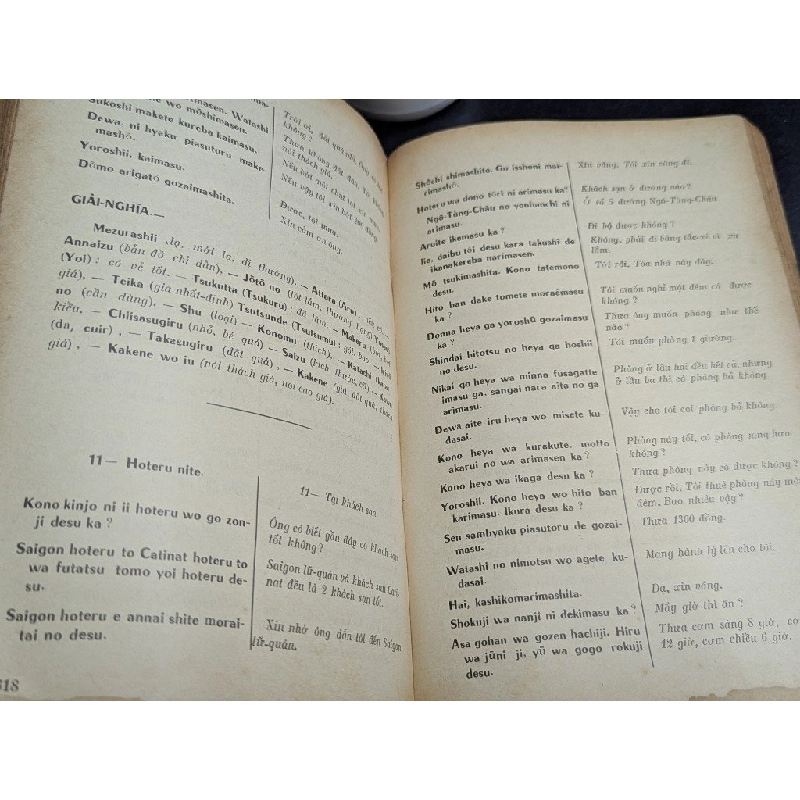 wo mōshimasen. Watashi
Sukoshi makete kureba kaimasu.
Dewa, ni hyaku piasutoru make-
mashō.
Yoroshii, kaimasu.
Dōmo arigatō gozaimashita.
Trời ơi, đắt quá
không ?
nói thách giá.
Được, tôi mua.
Xin cám ơn ông.
GIẢI-NGHĨA.—
Mezurashii (lạ, mới lạ, dị thường). —
Annaizu (bản đồ chỉ dẫn). — Jōtō no
(Yoi) : có vẻ tốt. — Tsukutta (Tsukuru) :
giá). — Teika (giá nhất-định) Tsutsunde (Tsutsumu) :
no (cần dùng). — Shu (loại) — Konomu (thích). — Katachi
kiểu. — Chiisasugiru (nhỏ, bé quá) — Saizu
(da, cuir). — Takasugiru (đắt quá). — Kakene
giá). — Kakene wo iu (nói thách giá, nói cao giá).
11— Hoteru nite.
Kono kinjo ni ii hoteru wo go zon-
ji desu ka ?
Saigon hoteru to Catinat hoteru to
wa futatsu tomo yoi hoteru de-
su.
Saigon hoteru e annai shite morai-
tai no desu.
11— Tại khách sạn.
Ông có biết gần đây có khách sạn
tốt không ?
Saigon lữ-quán và khách sạn Cati-
nat đều là 2 khách sạn tốt.
Xin nhờ ông dẫn tôi đến Saigon
lữ-quán.
318
Shōchi shimashita. Go isshoni mai-
rimashō.
Hoteru wa dano tōri ni arimasu ka?
Ngô-Tùng-Châu no yonjunchi ni
arimasu.
Aruite ikemasu ka ?
Iie, daibu tōi desu kara takushi de
ikanakereba narimasen.
Mō tsukimashita. Kono tatemono
desu.
Hito ban dake tomete moraemasu
ka ?
Donna heya ga yoroshū gozaimasu
ka ?
Shindai hitotsu no heya ga hoshii
no desu.
Nikai no heya wa minna fusagatte
imasu ga, sangai nara aita no ga
arimasu.
Dewa aite iru heya wo misete ku-
dasai.
Kono heya wa kurakute, motto
akarui no wa arimasen ka ?
Kono heya wa ikaga desu ka ?
Yoroshii. Kono heya wo hito ban
karimasu. Ikura desu ka ?
Sen sambyaku piasutoru de gozai-
masu.
Watashi no nimotsu wo agete ku-
dasai.
Hai, kashikomarimashita.
Shokuji wa nanji ni dekimasu ka ?
Asa gohan wa gozen hachiji. Hiru
wa jūni ji, yū wa gogo rokuji
desu.
Xin vâng, Tôi xin cùng đi.
Khách sạn ở đường nào ?
Ở số 5 đường Ngô-Tùng-Châu
Đi bộ được không ?
Không, phải đi bằng tắc-xi vì xa
lắm.
Tới rồi, Tòa nhà này đây.
Tôi muốn nghỉ một đêm có được
không ?
Thưa ông muốn phòng như thế
nào ?
Tôi muốn phòng 1 giường.
Phòng ở lầu hai đều hết cả, nhưng
ở lầu ba thì có phòng bỏ không.
Vậy cho tôi coi phòng bỏ không.
Phòng này tối, có phòng sáng hơn
không ?
Thưa phòng này có được không ?
Được rồi, Tôi thuê phòng này một
đêm, Bao nhiêu vậy ?
Thưa 1300 đồng.
Mang hành lý lên cho tôi.
Dạ, xin vâng.
Mấy giờ thì ăn ?
Thưa cơm sáng 8 giờ, cơm
12 giờ, cơm chiều 6 giờ.